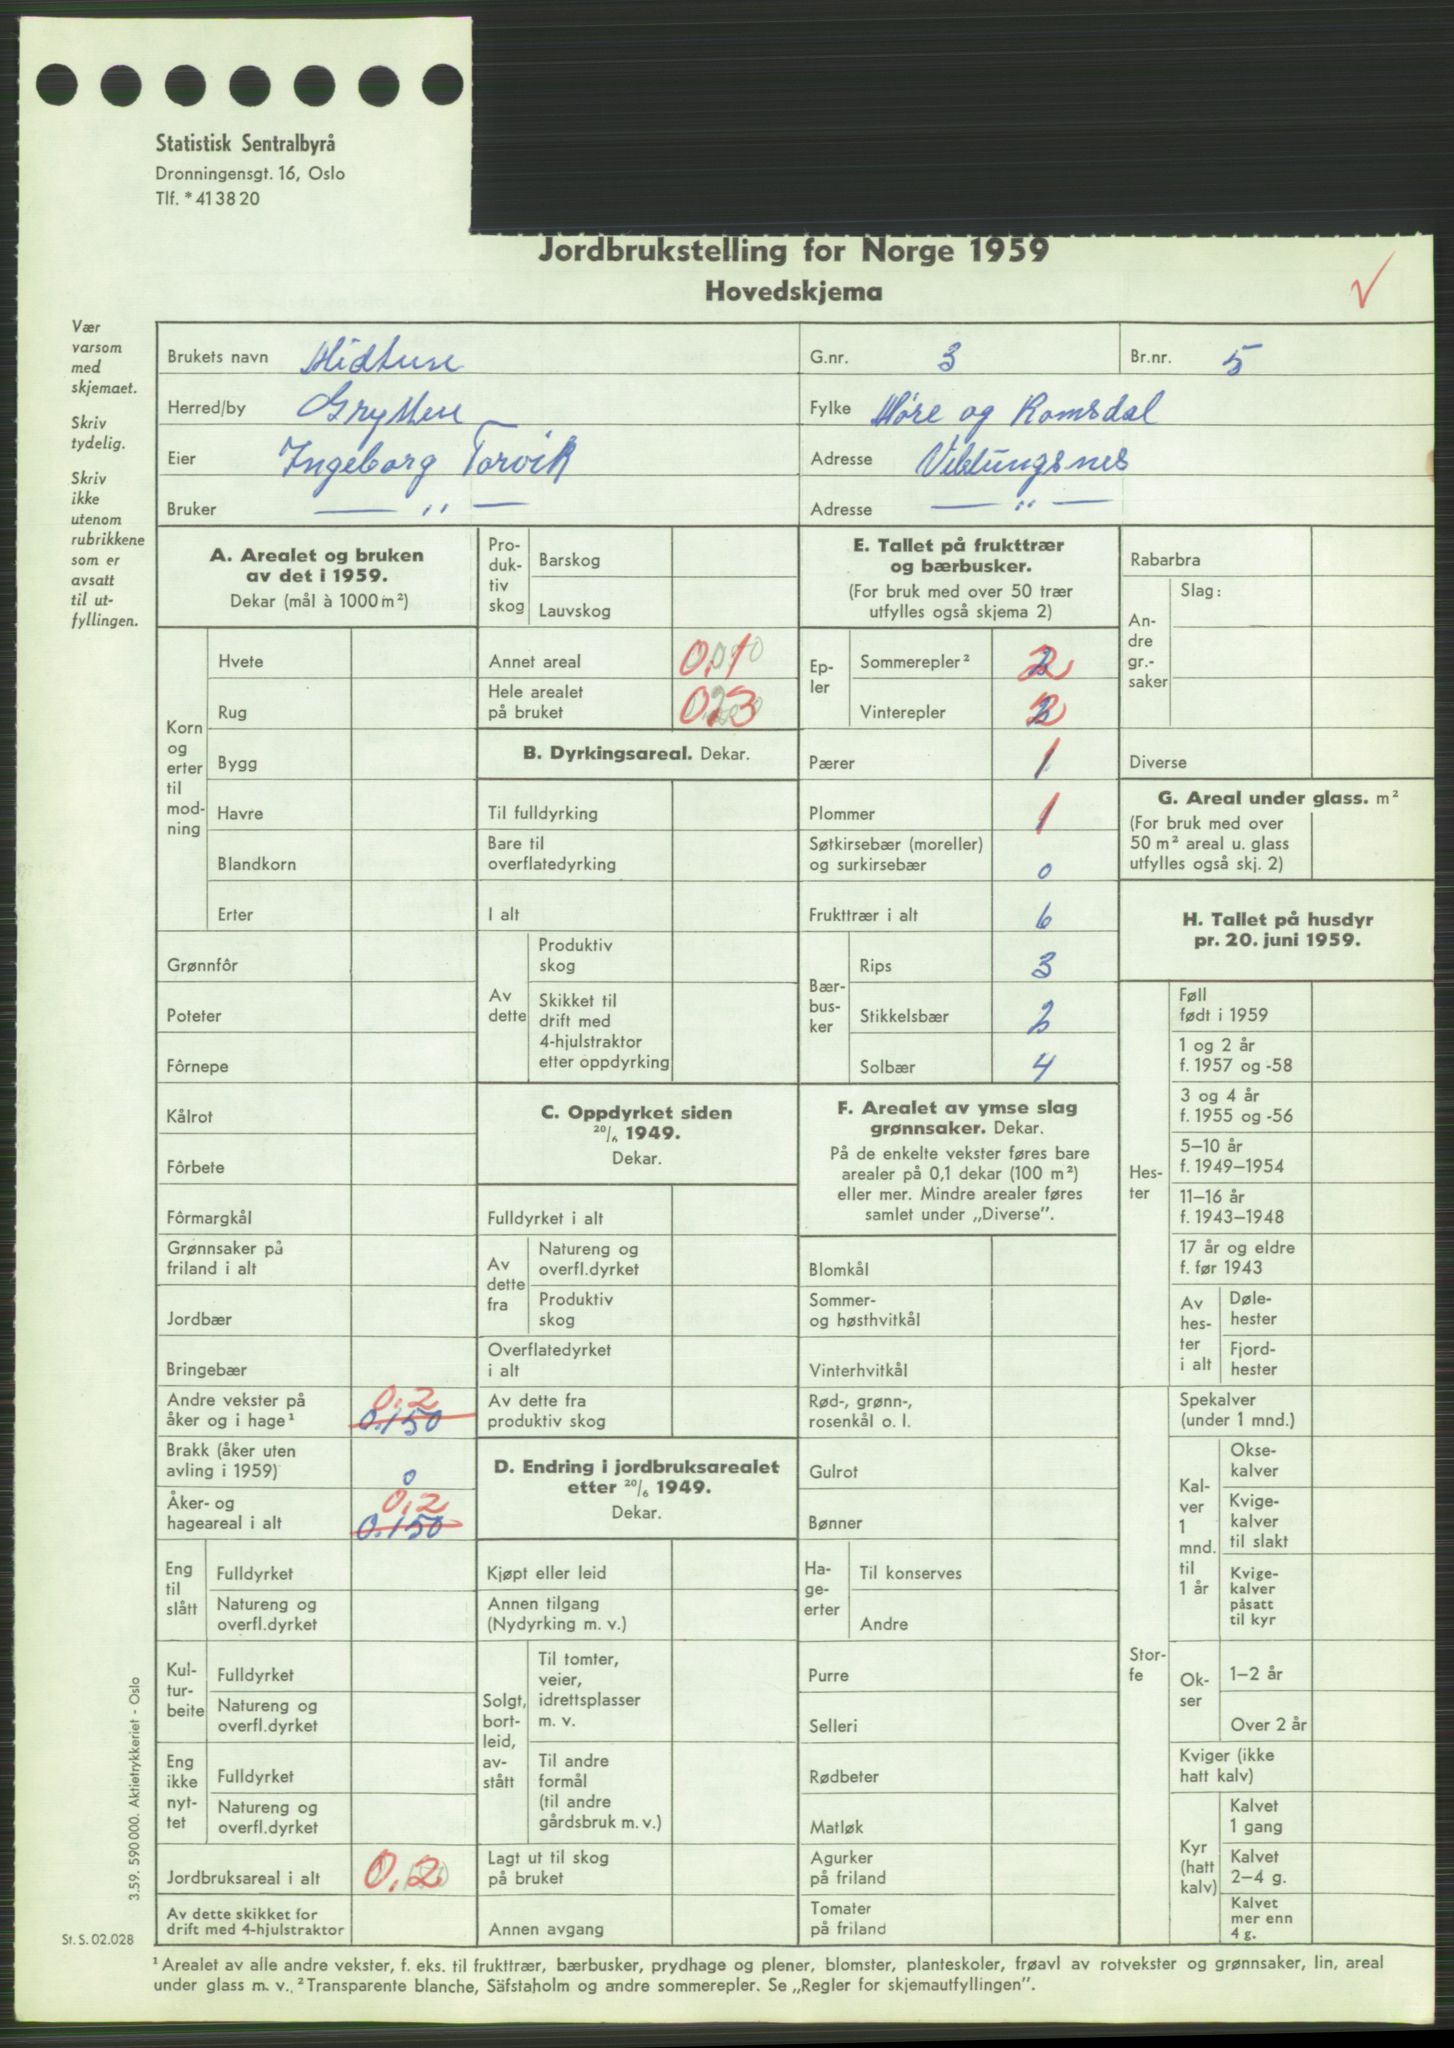 Statistisk Sentralbyrå
Dronningensgt. 16, Oslo
Tlf. * 41 38 20
Jordbrukstelling for Norge 1959
Hovedskjema
√
Vær
varsom
med
skjemaet.
Skriv
tydelig.
Skriv
ikke
utenom
rubrikkene
som er
avsatt
til ut-
fyllingen.
Brukets navn Midtun G.nr. 3 Br.nr. 5
Herred/by Grytten Fylke Møre og Romsdal
Eier Ingeborg Torvik Adresse Veblungsnes
Bruker — ,, — Adresse — ,, —
A. Arealet og bruken
av det i 1959.
Dekar (mål à 1000 m²)
Korn
og
erter
til
mod-
ning
Hvete
Rug
Bygg
Havre
Blandkorn
Erter
Grønnfôr
Poteter
Fôrnepe
Kålrot
Fôrbete
Fôrmargkål
Grønnsaker på
friland i alt
Jordbær
Bringebær
Andre vekster på 0.2
åker og i hage¹ 0.150
Brakk (åker uten
avling i 1959) 0
Åker- og 0.2
hageareal i alt 0.150
Eng
til
slått
Fulldyrket
Natureng og
overfl.dyrket
Kul-
tur-
beite
Fulldyrket
Natureng og
overfl.dyrket
Eng
ikke
nyt-
tet
Fulldyrket
Natureng og
overfl.dyrket
Jordbruksareal i alt 0.2
Av dette skikket for
drift med 4-hjulstraktor
Pro-
duk-
tiv
skog
Barskog
Lauvskog
Annet areal 0.1
Hele arealet
på bruket 0.3
B. Dyrkingsareal. Dekar.
Til fulldyrking
Bare til
overflatedyrking
I alt
Av
dette
Produktiv
skog
Skikket til
drift med
4-hjulstraktor
etter oppdyrking
C. Oppdyrket siden
20/6 1949.
Dekar.
Fulldyrket i alt
Av
dette
fra
Natureng og
overfl.dyrket
Produktiv
skog
Overflatedyrket
i alt
Av dette fra
produktiv skog
D. Endring i jordbruksarealet
etter 20/6 1949.
Dekar.
Kjøpt eller leid
Annen tilgang
(Nydyrking m. v.)
Solgt,
bort-
leid,
av-
stått
Til tomter,
veier,
idrettsplasser
m. v.
Til andre
formål
(til andre
gårdsbruk m. v.)
Lagt ut til skog
på bruket
Annen avgang
E. Tallet på frukttrær
og bærbusker.
(For bruk med over 50 trær
utfylles også skjema 2)
Ep-
ler
Sommerepler² 2
Vinterepler 2
Pærer 1
Plommer 1
Søtkirsebær (moreller)
og surkirsebær 0
Frukttrær i alt 6
Bær-
bus-
ker
Rips 3
Stikkelsbær 2
Solbær 4
F. Arealet av ymse slag
grønnsaker. Dekar.
På de enkelte vekster føres bare
arealer på 0,1 dekar (100 m²)
eller mer. Mindre arealer føres
samlet under „Diverse”.
Blomkål
Sommer-
og høsthvitkål
Vinterhvitkål
Rød-, grønn-,
rosenkål o. l.
Gulrot
Bønner
Ha-
ge-
erter
Til konserves
Andre
Purre
Selleri
Rødbeter
Matløk
Agurker
på friland
Tomater
på friland
Rabarbra
An-
dre
gr.-
saker
Slag:
Diverse
G. Areal under glass. m²
(For bruk med over
50 m² areal u. glass
utfylles også skj. 2)
H. Tallet på husdyr
pr. 20. juni 1959.
Hes-
ter
Føll
født i 1959
1 og 2 år
f. 1957 og -58
3 og 4 år
f. 1955 og -56
5–10 år
f. 1949–1954
11–16 år
f. 1943–1948
17 år og eldre
f. før 1943
Av
hes-
ter
i alt
Døle-
hester
Fjord-
hester
Stor-
fe
Spekalver
(under 1 mnd.)
Kal-
ver
1
mnd.
til
1 år
Okse-
kalver
Kvige-
kalver
til slakt
Kvige-
kalver
påsatt
til kyr
Ok-
ser
1–2 år
Over 2 år
Kviger (ikke
hatt kalv)
Kyr
(hatt
kalv)
Kalvet
1 gang
Kalvet
2–4 g.
Kalvet
mer enn
4 g.
3.59. 590 000. Aktietrykkeriet - Oslo
St. S. 02.028
¹ Arealet av alle andre vekster, f. eks. til frukttrær, bærbusker, prydhage og plener, blomster, planteskoler, frøavl av rotvekster og grønnsaker, lin, areal
under glass m. v. ² Transparente blanche, Säfstaholm og andre sommerepler. Se „Regler for skjemautfyllingen”.